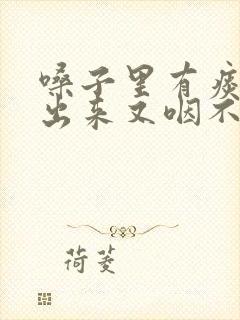 嗓子里有痰
出来又咽不
荷菱